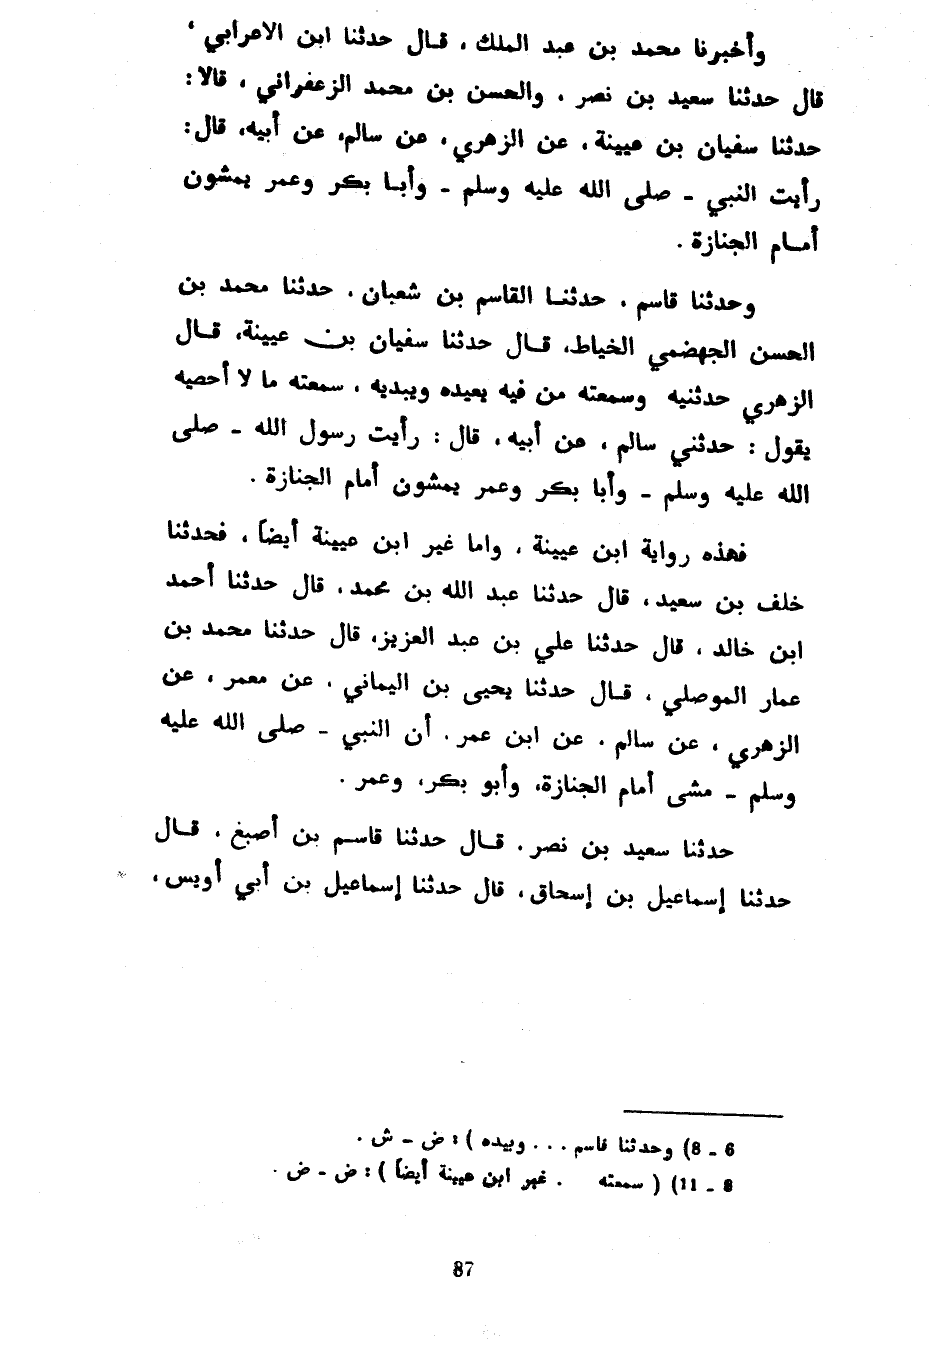 وأخبرنا محمد بن عبد الملك ، قـال حدثنا ابن الاعرابي ،
قال حدثنا سعيد بن نصر ، والحسن بن محمد الزعفراني ، قالا :
حدثنا سفيان بن عيينة ، عن الزهري ، عن سالم، عن أبيه، قال :
رأيت النبي ـ صلى الله عليه وسلم ـ وأبـا بكر وعمر يمشون
أمـام الجنازة .
وحدثنا قاسم ، حدثنـا القاسم بن شعبان ، حدثنا محمد بن
الحسن الجهضمي الخياط، قـال حدثنا سفيان بن عيينة، قـال
الزهري حدثنيه وسمعته من فيه يعيده ويبديه ، سمعته ما لا أحصيه
يقول : حدثني سالم ، عن أبيه ، قال : رأيت رسول الله ـ صلى
الله عليه وسلم ـ وأبا بكر وعمر يمشون أمام الجنازة .
فهذه رواية ابن عيينة ، واما غير ابن عيينة أيضاً ، فحدثنا
خلف بن سعيد ، قال حدثنا عبد الله بن محمد ، قال حدثنا أحمد
ابن خالد ، قال حدثنا علي بن عبد العزيز، قال حدثنا محمد بن
عمار الموصلي ، قـال حدثنا يحيى بن اليماني ، عن معمر ، عن
الزهري ، عن سالم ، عن ابن عمر . أن النبي ـ صلى الله عليه
وسلم ـ مشى أمام الجنازة، وأبو بكر، وعمر .
حدثنا سعيد بن نصر ، قـال حدثنا قاسـم بن أصبغ ، قـال
حدثنا إسماعيل بن إسحاق ، قال حدثنا إسماعيل بن أبي أويس ،
6 ـ 8) وحدثنا قاسم ... وبيده ) : ض ـ ش .
8 ـ 11) ( سمعته . غير ابن عيينة أيضاً ) : ض ـ ض .
87